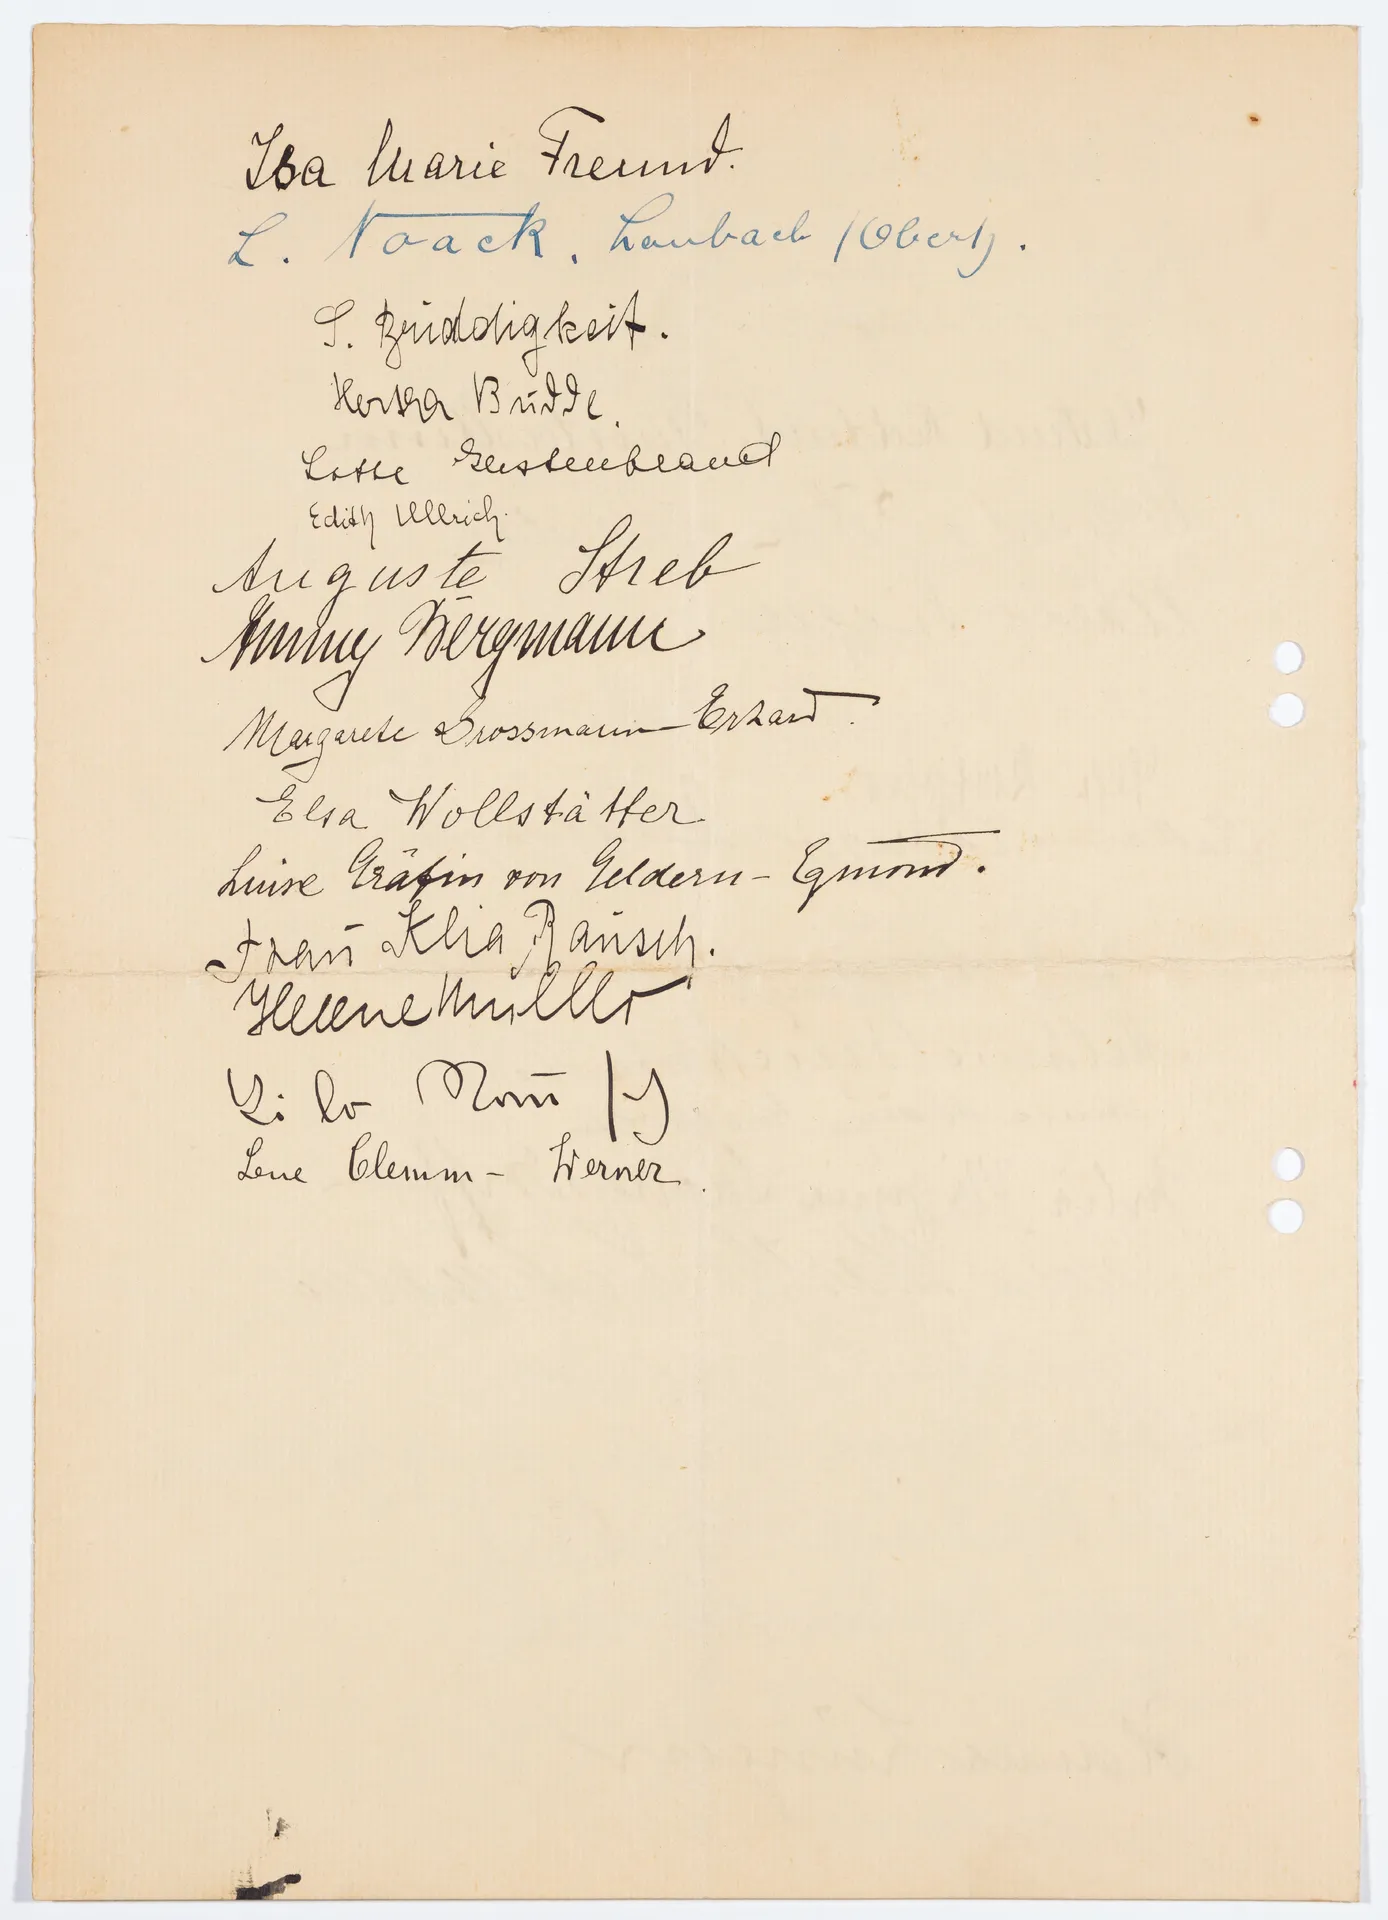 Isa Marie Freund.
L. Noack, Laubach /Oberh.
S. Brüddigkeit.
Hertha Budde.
Lotte Gerstenbrand
Edith Ullrich.
Auguste Streb
Anny Bergmann
Margarete Drossmann-Erhard.
Elsa Wollstätter
Luise Gräfin von Geldern-Egmond.
Frau Rausch.
Helene Müller
Lilo
Lene Clemm-Werner.